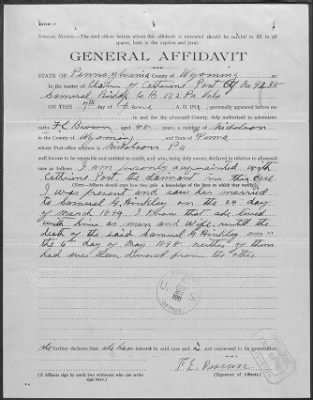 SPECIAL NOTICE.—The civil officer before whom this affidavit is executed should be careful to fill in all
spaces, both in the caption and jurat.
GENERAL AFFIDAVIT
STATE OF Pennsylvania County of Wyoming
In the matter of Claim of Catherine Post No 92
Samuel
ON THIS day of June A. D. 191 , personally appeared before me
in and for the aforesaid County, duly authorized to administer
oaths aged 48 years, a resident of Nicholson
in the County of Wyoming and State of Penna
whose Post-office address is Nicholson Pa
well known to be reputable and entitled to credit, and who, being duly sworn, declared in relation to aforesaid
case as follows: I am personly acquainted with
Catherine Post the claimant in this case
(NOTE.—Affiants should state how they gain a knowledge of the facts to which they testify.)
I was present and saw her married
to Samuel G. Hinkley on the 24 day
of March 1894. I know that she lived
with him as man and wife until the
death of the said Samuel G Hinkley on
the 6th day of May 1898 neither of them
had ever been divorced from the other
she further declares that she has no interest in said case and is not concerned in its prosecution.
(If Affiants sign by mark two witnesses who can write
sign here.)
(Signature of Affiants.)